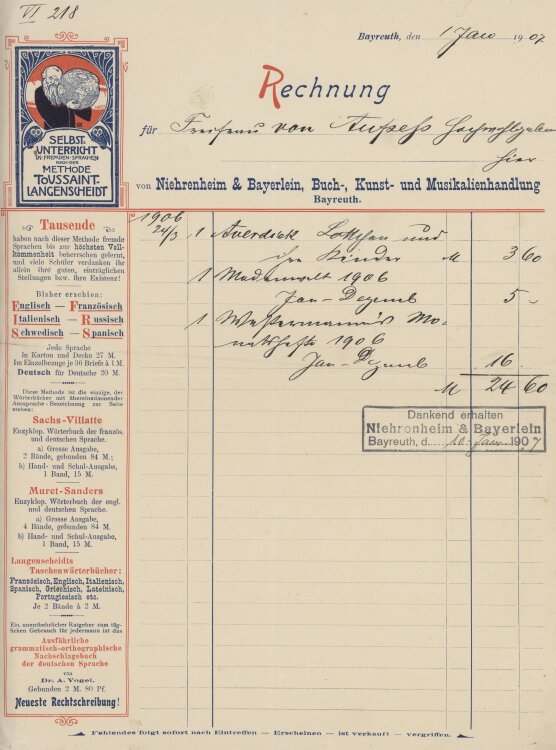 VI 218
Bayreuth, den 1 Jan 1907
Rechnung
für Freifrau von Aufsess Hochwohlgeboren
hier
von Niehrenheim & Bayerlein, Buch-, Kunst- und Musikalienhandlung
Bayreuth.
SELBST-
UNTERRICHT
IN FREMDEN SPRACHEN
NACH DER
METHODE
TOUSSAINT-
LANGENSCHEIDT
Tausende
haben nach dieser Methode fremde
Sprachen bis zur höchsten Voll-
kommenheit beherrschen gelernt,
und viele Schüler verdanken ihr
allein ihre guten, einträglichen
Stellungen bzw. ihre Existenz!
Bisher erschien:
Englisch — Französisch
Italienisch — Russisch
Schwedisch — Spanisch
Jede Sprache
in Karton und Decke 27 M.
Im Einzelbezuge je 36 Briefe à 1 M.
Deutsch für Deutsche 20 M.
Diese Methode ist die einzige, der
Wörterbücher mit übereinstimmender
Aussprache-Bezeichnung zur Seite
stehen:
Sachs-Villatte
Enzyklop. Wörterbuch der französ.
und deutschen Sprache.
a) Grosse Ausgabe,
2 Bände, gebunden 84 M.;
b) Hand- und Schul-Ausgabe,
1 Band, 15 M.
Muret-Sanders
Enzyklop. Wörterbuch der engl.
und deutschen Sprache.
a) Grosse Ausgabe,
4 Bände, gebunden 84 M.
b) Hand- und Schul-Ausgabe,
1 Band, 15 M.
Langenscheidts
Taschenwörterbücher:
Französisch, Englisch, Italienisch,
Spanisch, Griechisch, Lateinisch,
Portugiesisch etc.
Je 2 Bände à 2 M.
Ein unentbehrlicher Ratgeber zum täg-
lichen Gebrauch für jedermann ist das
Ausführliche
grammatisch-orthographische
Nachschlagebuch
der deutschen Sprache
von
Dr. A. Vogel.
Gebunden 2 M. 80 Pf.
Neueste Rechtschreibung!
1906
24/3 1 Averdieck Lottchen und
ihre Kinder M 3 60
1 Modenwelt 1906
Jan-Dezemb 5 -
1 Westermann's Mo-
natshefte 1906
Jan-Dezemb 16
M 24 60
Dankend erhalten
Niehrenheim & Bayerlein
Bayreuth, d. 10. Jan 1907
Fehlendes folgt sofort nach Eintreffen — Erscheinen — ist verkauft — vergriffen.